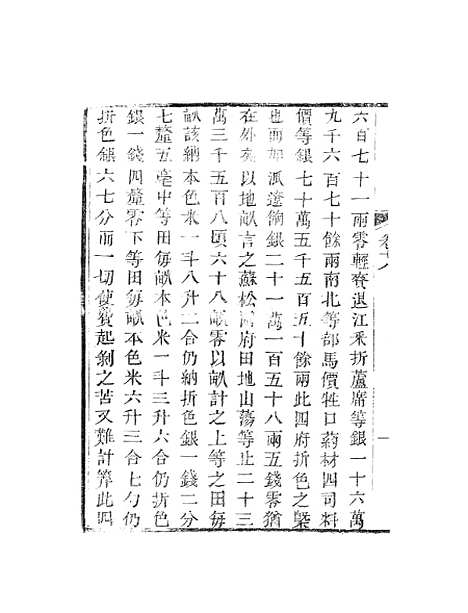 六百七十一兩零輕賫退江米折蘆席等銀一十六萬
九千六百七十餘兩南北等部馬價牲口葯材四司料
價等銀七十萬五千五百五十餘兩此四府折色之槩
也而如派遼餉銀二十一萬一百五十八兩五錢零猶
在外矣以地畝言之蘇松府田地山蕩等止二十三
萬三千五百八頃六十八畝零以畝計之上等之田每
畝該納本色米一斗八升二合仍納折色銀一錢二分
七釐五毫中等田每畝本色米一斗三升六合仍折色
銀一錢四釐零下等田每畝本色米六升三合七勺仍
折色銀六七分而一切使費起剝之苦又難計筭此四
卷十八
一